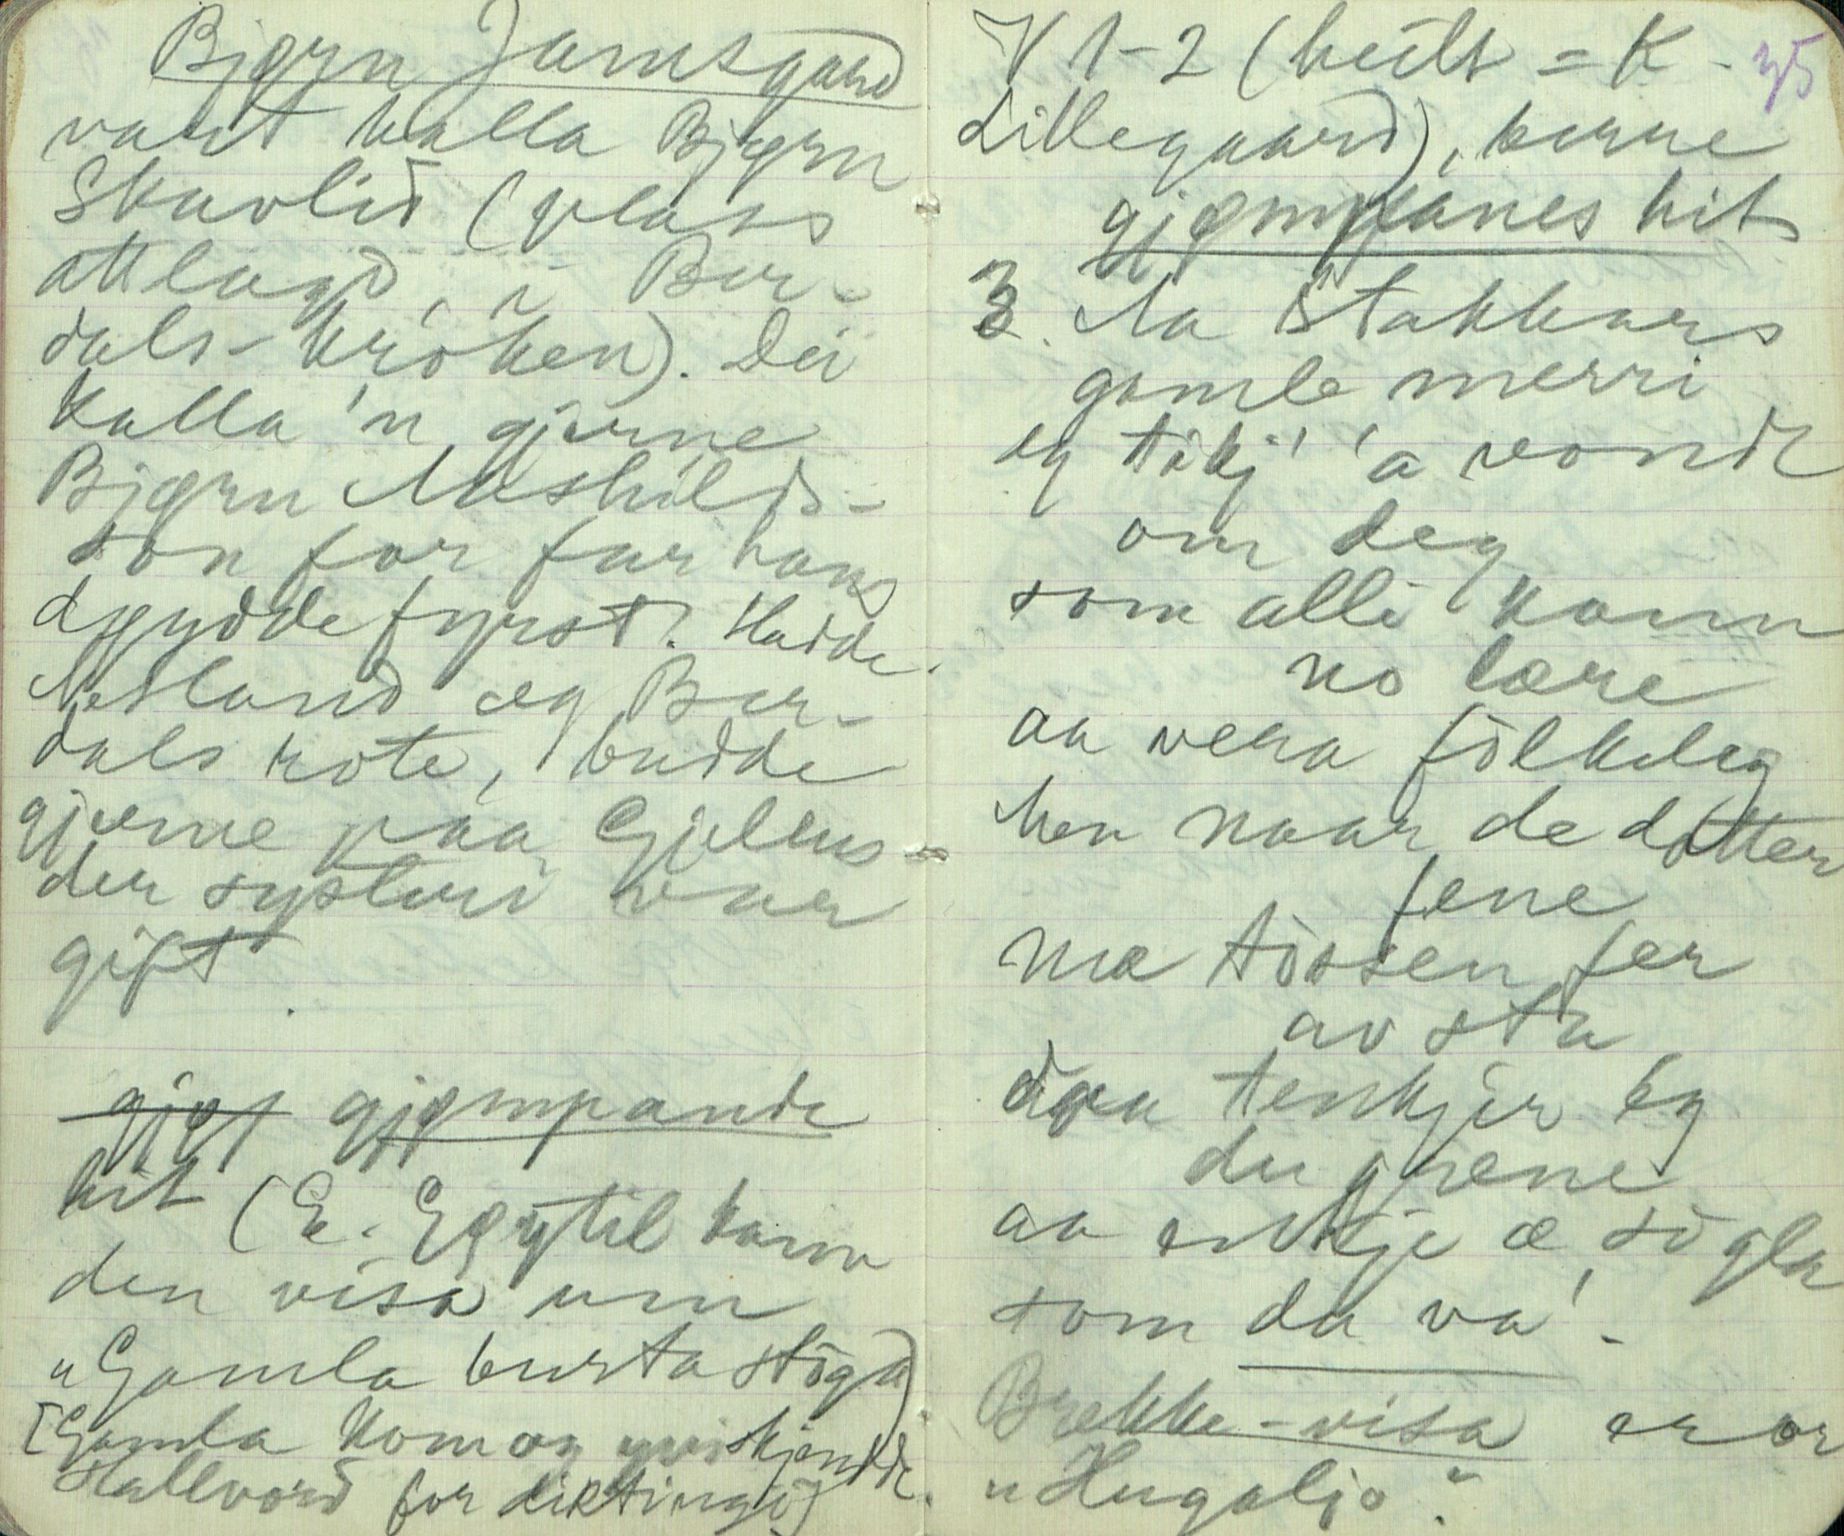 Bjørn Jamsgard
vart kalla Bjørn
Skarlid (plass
attlagd i Bor-
dals-króken). Dei
kalla 'n gjerne
Bjørn Åshilds-
son for far hans
døydde fyrst. Hadde
Åsland og Bor-
dals rote, budde
gjerne paa Gjellus
der systeri var
gift.
gjøs gjømpande
hit (E. Egýtil kann
den visa um
"Gamla burtastoga)
[Gamla kom og yvirskjendte
Hallvord for diktingi]
V 1-2 (heilt = K.
Lillegaard), burne
gjømpanes hit
3. Aa stakkars
gamle merri
eg tikj' 'a vondt
om deg
som alli kann
no lære
aa vera fólkeleg
Men naar de dotter
fene
mæ tóssen fer
av sta
daa tenkjer eg
du grene
aa inkje æ só gla
som du va'.
Brekke-visa er or
"Hugaljo".
35